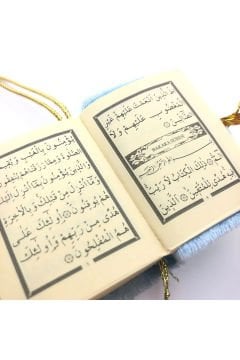 صِرَاطَ الَّذِينَ اَنْعَمْتَ عَلَيْهِمْ غَيْرِ
الْمَغْضُوبِ عَلَيْهِمْ وَلَا
الضَّالِّينَ
BAKARA SURESİ
بِسْمِ اللّٰهِ الرَّحْمٰنِ الرَّحِيمِ
الٓمٓ ذٰلِكَ الْكِتَابُ لَا رَيْبَ
فِيهِ هُدًى لِلْمُتَّقِينَ اَلَّذِينَ
يُؤْمِنُونَ بِالْغَيْبِ وَيُقِيمُونَ
الصَّلٰوةَ وَمِمَّا رَزَقْنَاهُمْ يُنْفِقُونَ
وَالَّذِينَ يُؤْمِنُونَ بِمَا اُنْزِلَ اِلَيْكَ
وَمَا اُنْزِلَ مِنْ قَبْلِكَ وَبِالْاٰخِرَةِ
هُمْ يُوقِنُونَ اُولٰئِكَ عَلٰى
هُدًى مِنْ رَبِّهِمْ وَاُولٰئِكَ
هُمُ الْمُفْلِحُونَ